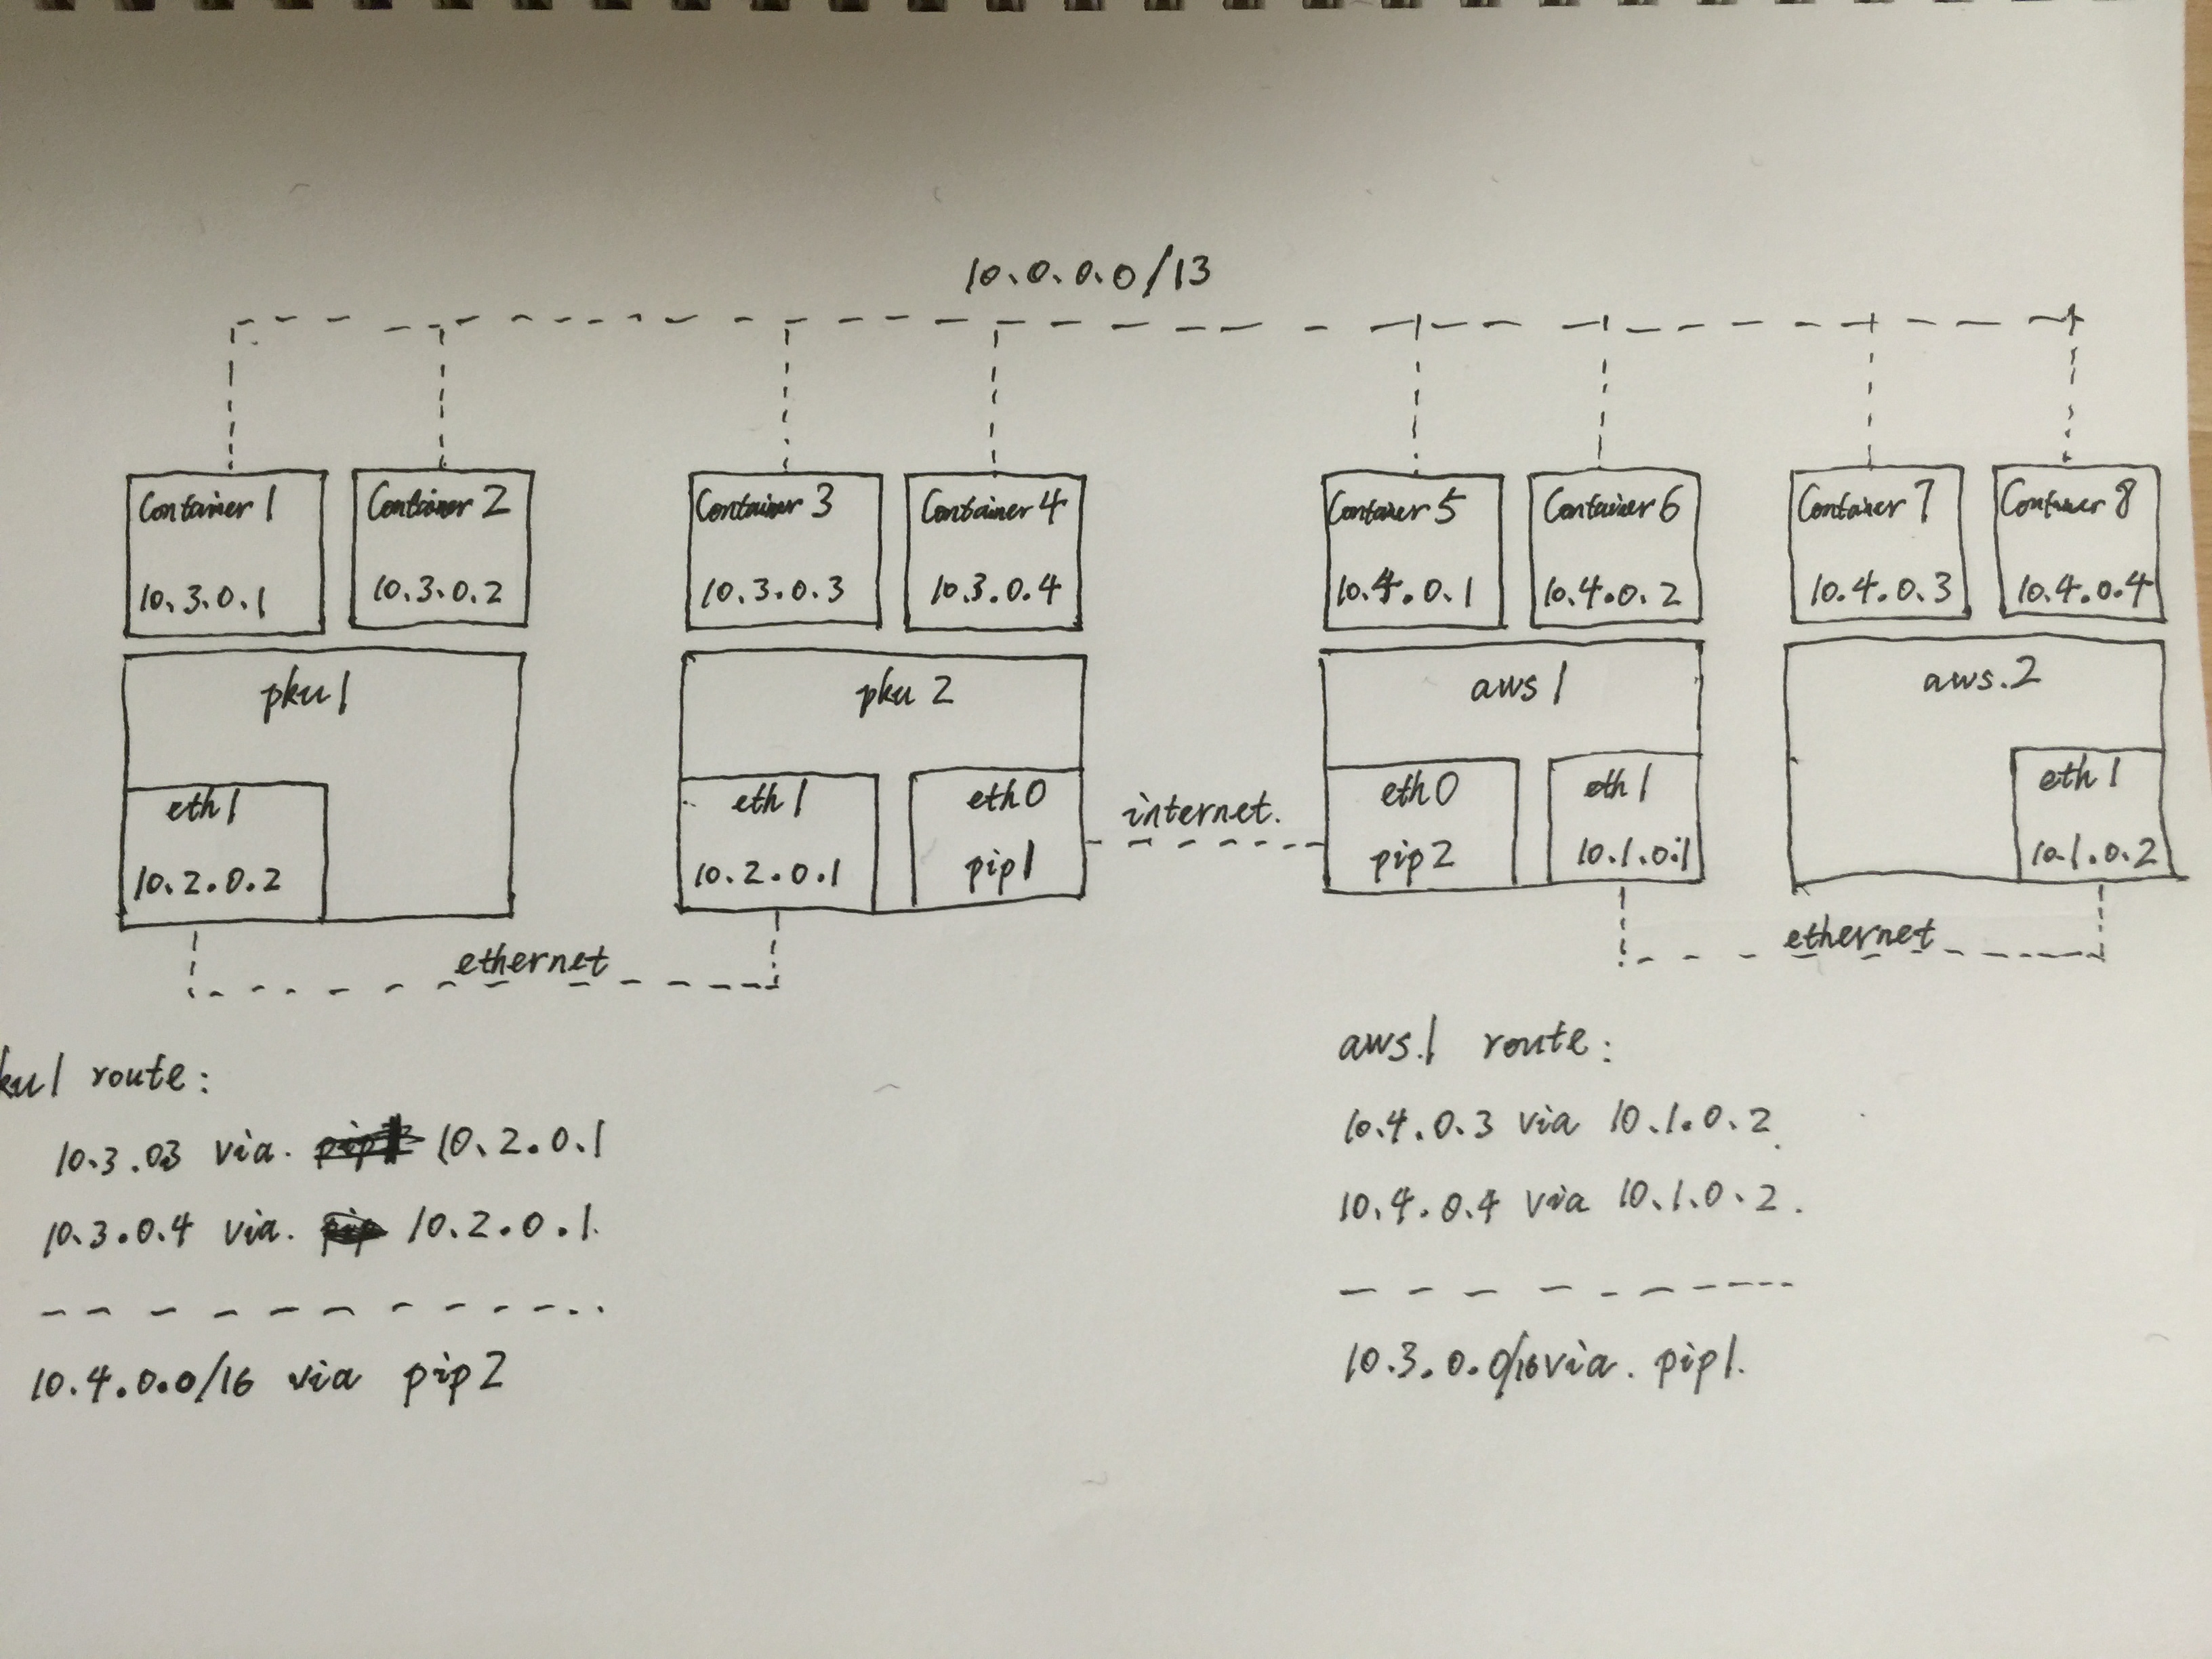 10.0.0.0/13
Container 1
10.3.0.1
Container 2
10.3.0.2
Container 3
10.3.0.3
Container 4
10.3.0.4
Container 5
10.4.0.1
Container 6
10.4.0.2
Container 7
10.4.0.3
Container 8
10.4.0.4
pku1
eth1
10.2.0.2
pku 2
eth1
10.2.0.1
eth0
pip1
internet.
aws 1
eth0
pip2
eth1
10.1.0.1
aws.2
eth1
10.1.0.2
ethernet
ethernet
ku1 route:
10.3.03 via. 10.2.0.1
10.3.0.4 via. 10.2.0.1.
10.4.0.0/16 via pip2
aws.1 route:
10.4.0.3 via 10.1.0.2.
10.4.0.4 via 10.1.0.2.
10.3.0.0/16 via. pip1.